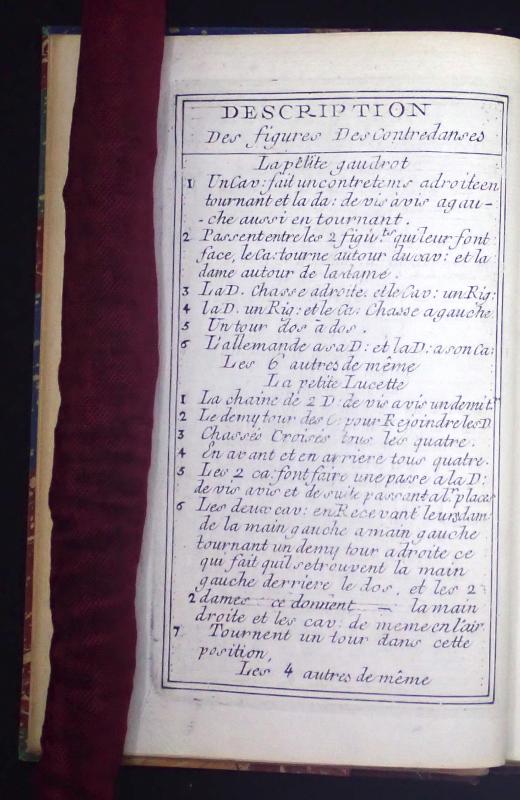 DESCRIPTION
Des figures Des Contredanses
La petite gaudrot
1 Un Cav: fait un contretems a droite en
tournant et la da: de vis a vis a gau -
- che aussi en tournant.
2 Passent entre les 2 figu.tes qui leur font
face, le Ca: tourne autour du cav: et la
dame autour de la dame.
3 La D. Chasse a droite. et le Cav: un Rig:
4 la D. un Rig: et le Ca: Chasse a gauche.
5 Un tour dos à dos.
6 L'allemande a sa D: et la D: a son Ca:
Les 6 autres de même
La petite Lucette
1 La chaine de 2 D: de vis a vis un demi t.r
2 Le demy tour des C: pour Rejoindre les D
3 Chassés Croisés tous les quatre.
4 En avant et en arriere tous quatre.
5 Les 2 ca: font faire une passe a la D:
de vis avis et de suite passant a l.r places
6 Les deux cav: en Recevant leurs dam
de la main gauche a main gauche
tournant un demy tour a droite ce
qui fait quil se trouvent la main
gauche derriere le dos, et les 2
2 dames ce donnent la main
droite et les cav: de meme en l'air
7 Tournent un tour dans cette
position,
Les 4 autres de même